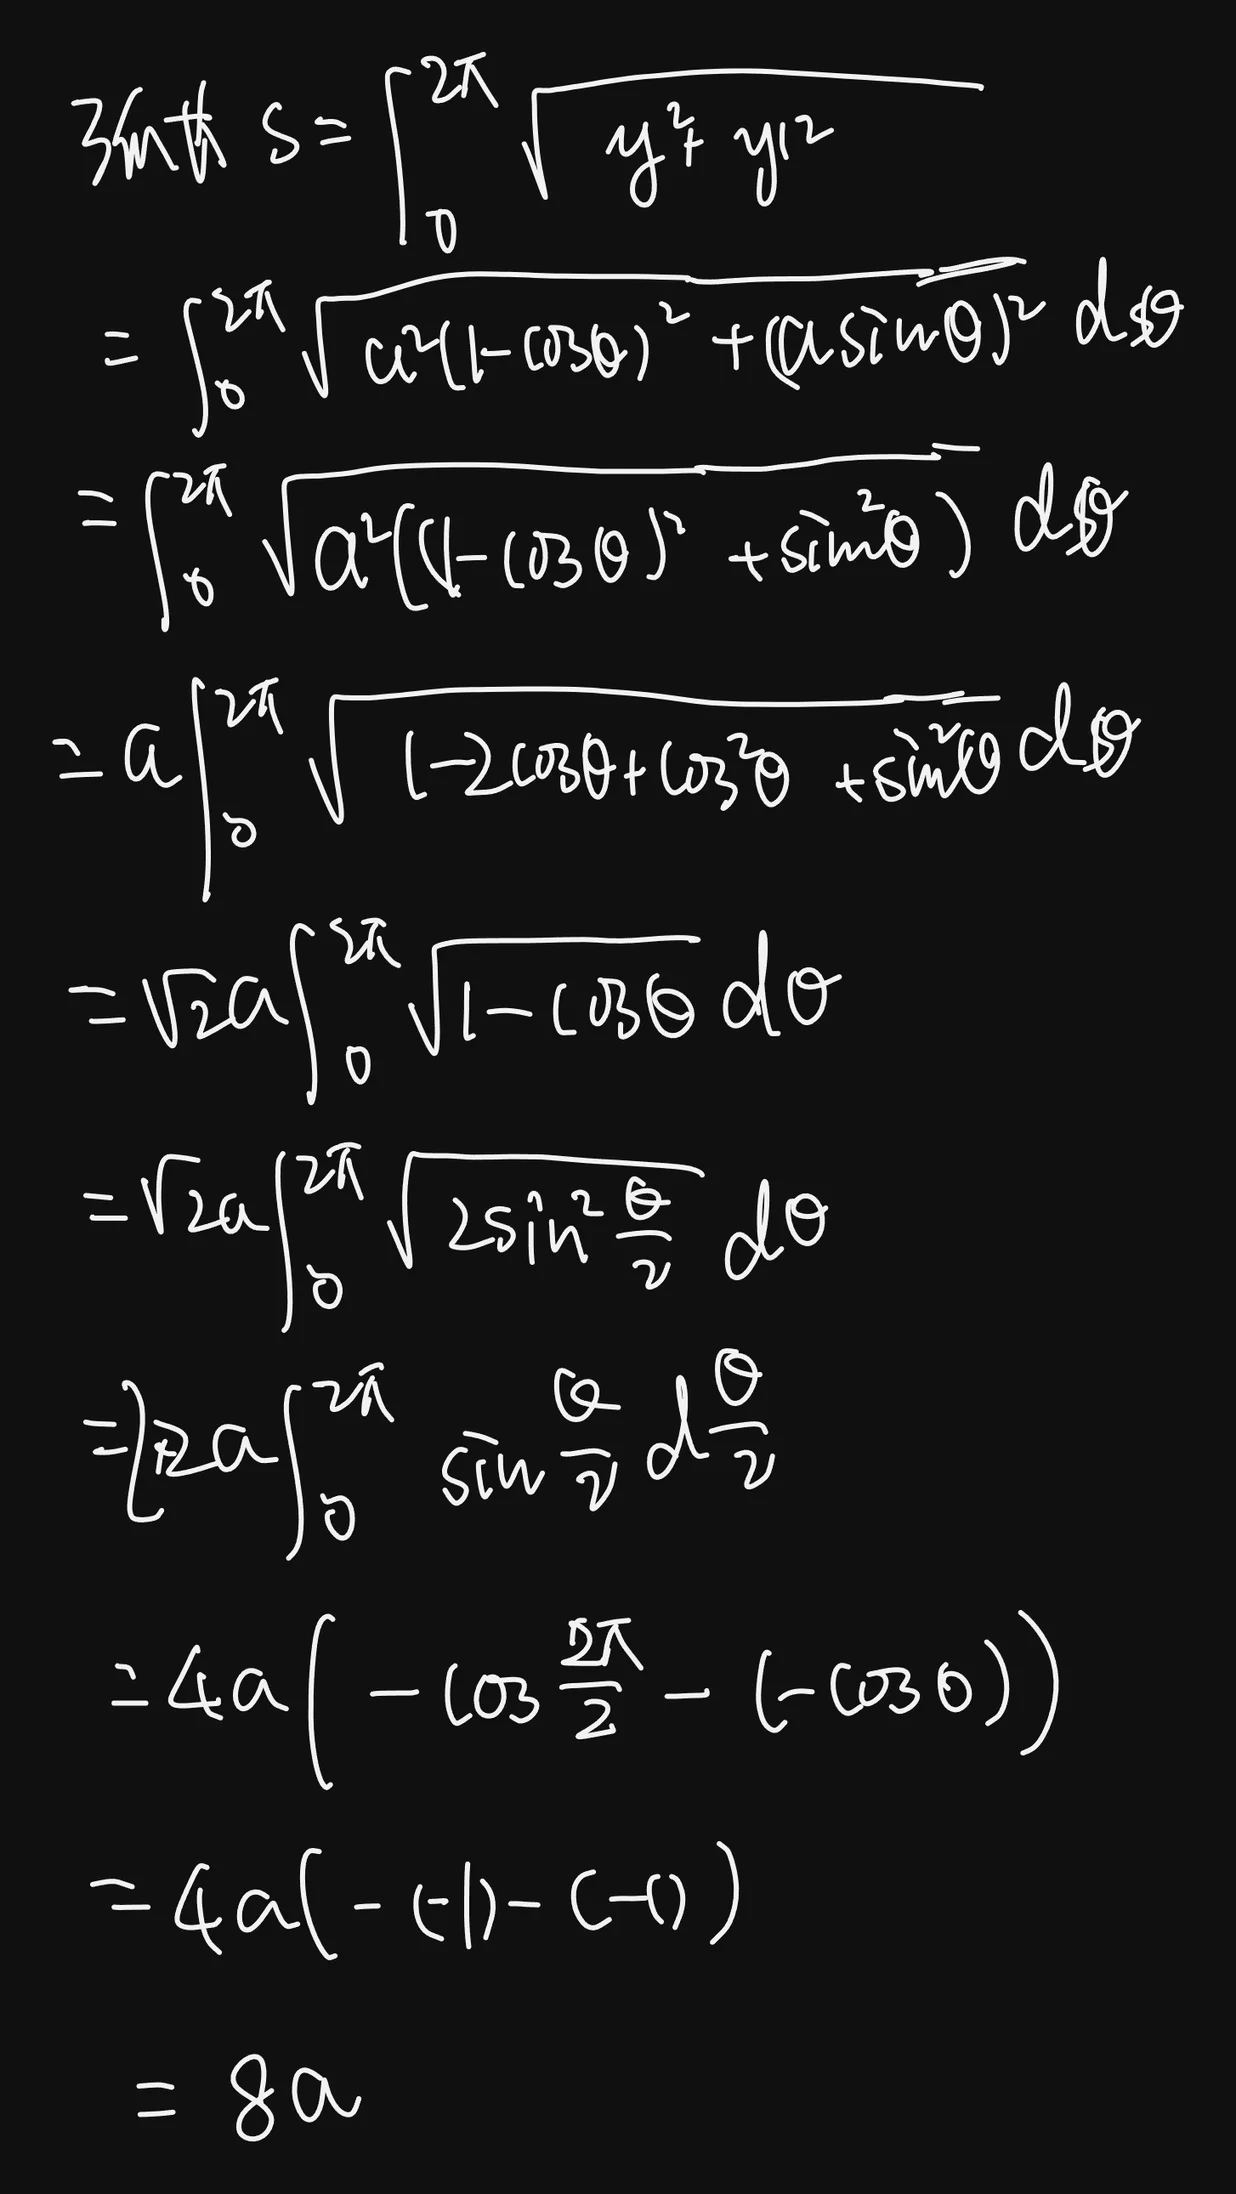 弧长 s = ∫₀^{2π} √(y² + y'²)
= ∫₀^{2π} √(a²(1-cosθ)² + (a sinθ)²) dθ
= ∫₀^{2π} √(a²((1-cosθ)² + sin²θ)) dθ
= a∫₀^{2π} √(1-2cosθ+cos²θ+sin²θ) dθ
= √2a∫₀^{2π} √(1-cosθ) dθ
= √2a∫₀^{2π} √(2sin²θ/2) dθ
= 2·2a∫₀^{2π} sin θ/2 d θ/2
= 4a(-cos 2π/2 - (-cos 0))
= 4a(-(-1)-(-1))
= 8a